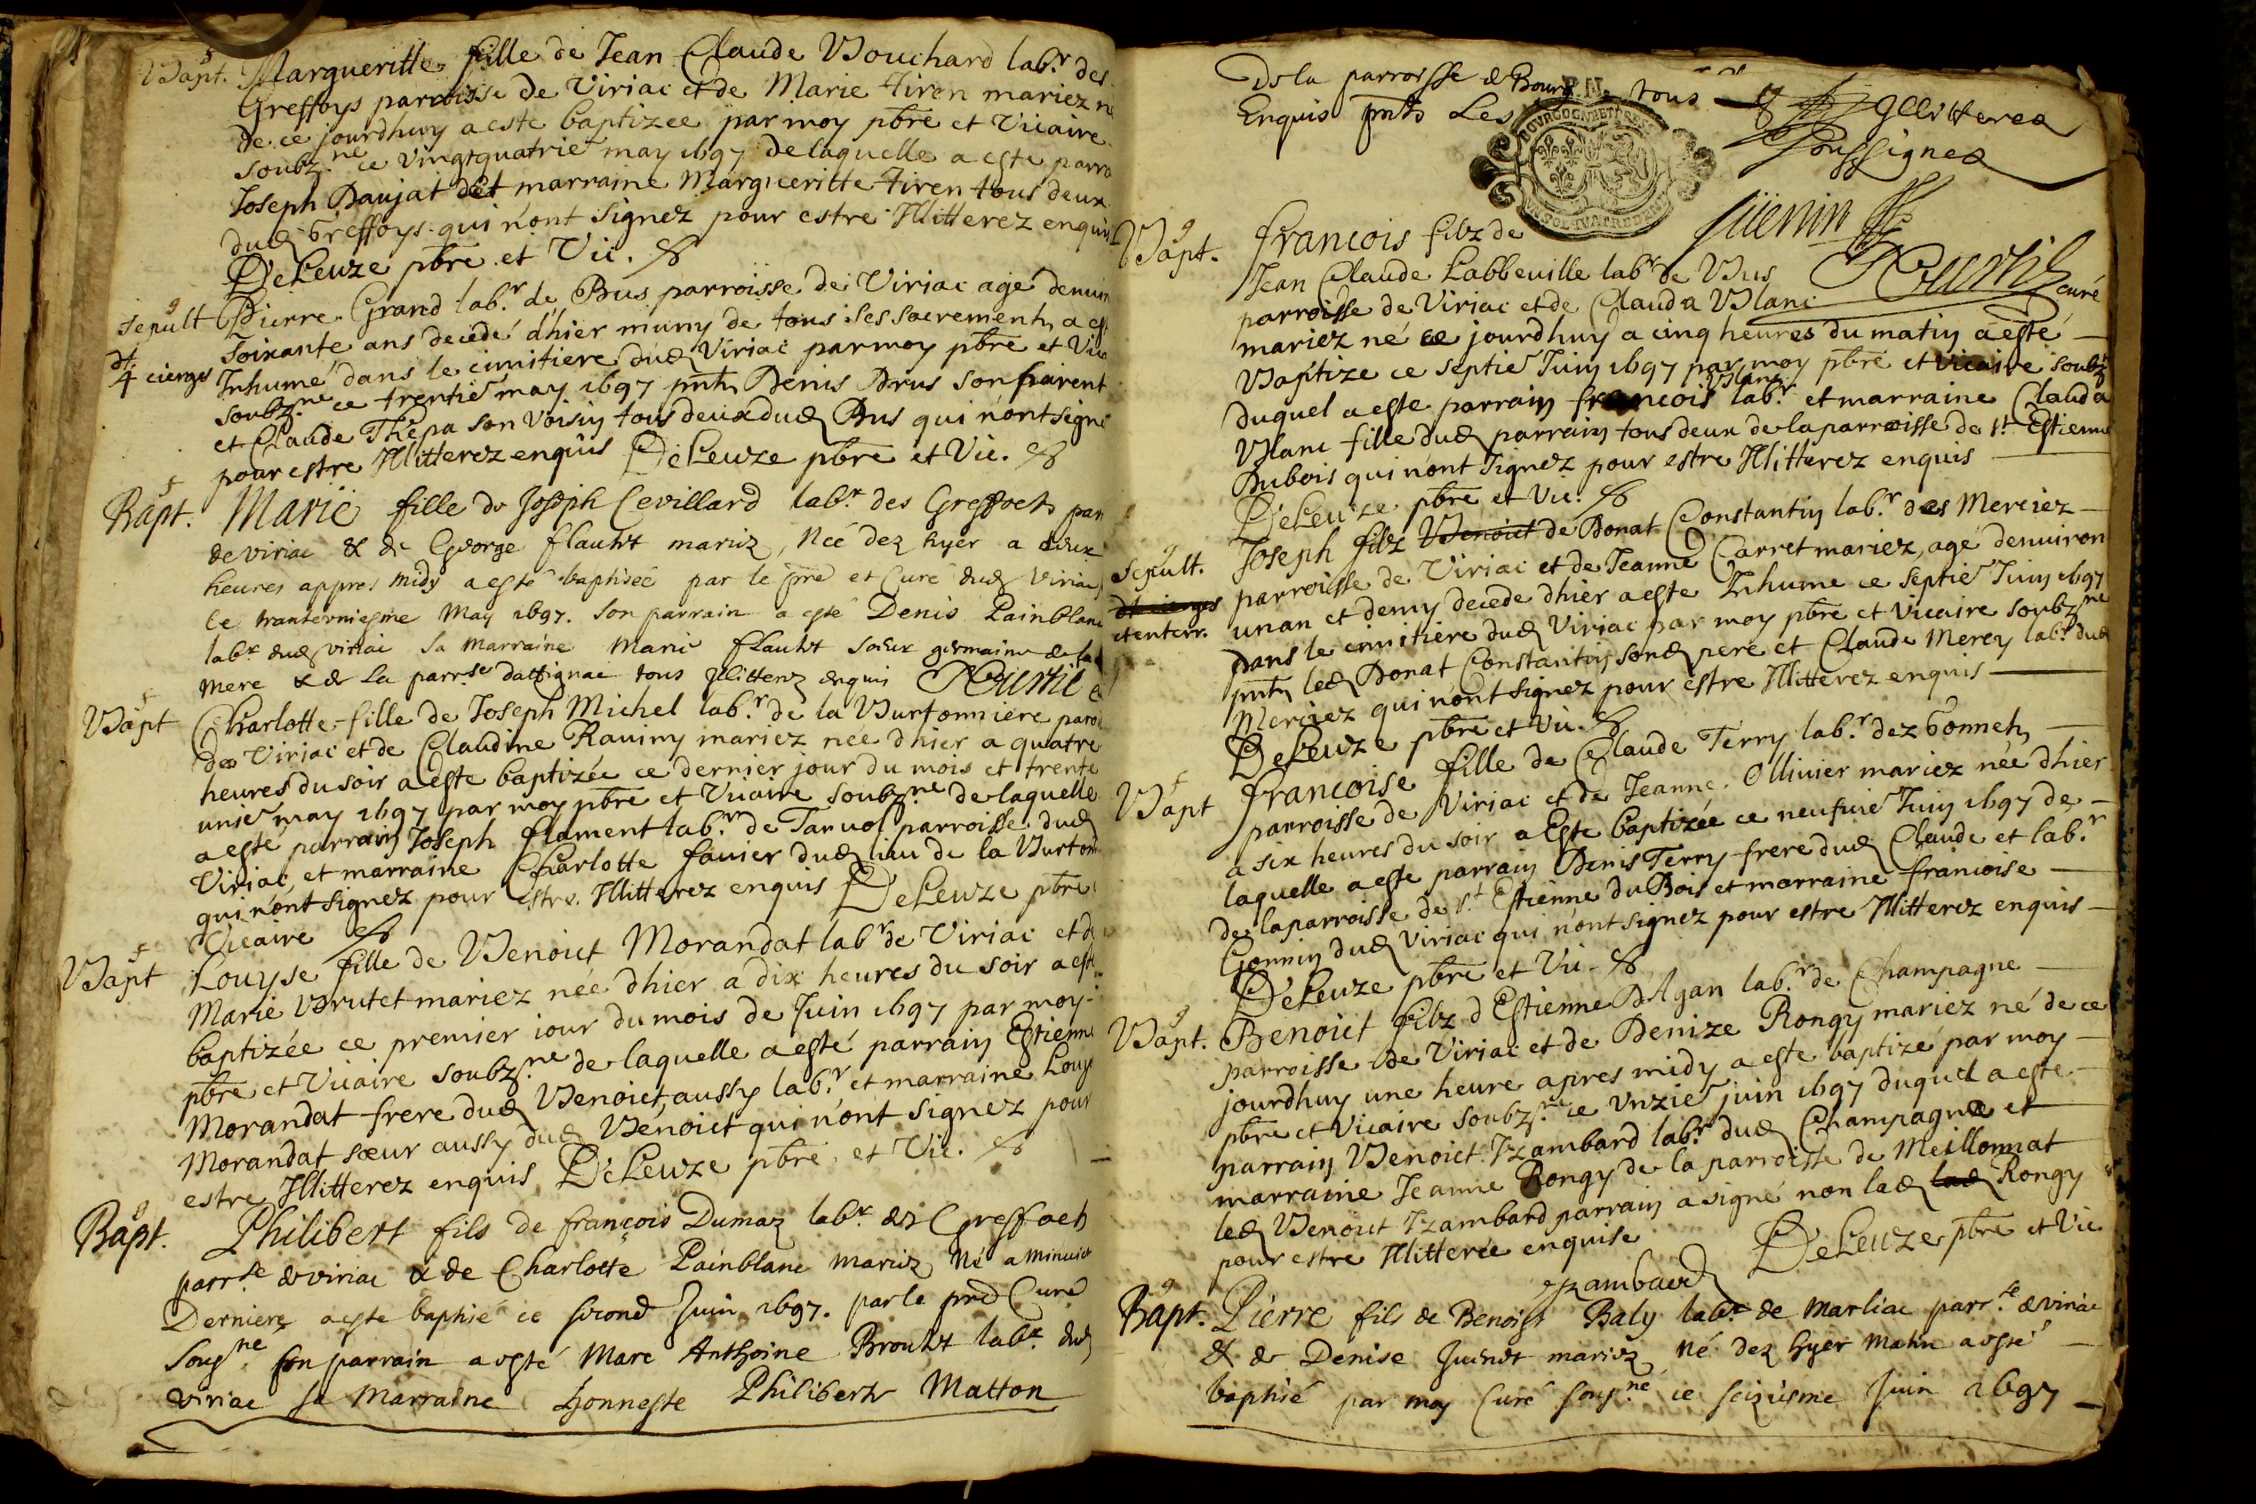 Bapt. Margueritte fille de Jean Claude Bouchard lab.r des
Greffoys parroisse de Viriac et de Marie Tiren mariez n
de ce jourdhuy a este baptizee par moy pbre et Vicaire
soubz.ne ce vingtquatrie may 1697 de laquelle a este parra
Joseph Daujat et marraine Margueritte Tiren tous deux
dud Greffoys qui n'ont signez pour estre Illitterez enquis
DeLeuze pbre et Vic.
sepult Pierre Grand lab.r de Bus parroisse de Viriac age denuiro
4 cierges soixante ans decedé d'hier muny de tous ses sacrements a est
Inhumé dans le cimitiere dud Viriac par moy pbre et Vica
soubz.ne ce trentie may 1697 pnts Denis Brus son parent
et Claude Thepa son voisin tous deux dud Bus qui n'ont signé
pour estre Illitterez enquis DeLeuze pbre et Vic.
Bapt. Marie fille de Joseph Cevillard lab.r des Greffoets par
de viriac & de George flauht mariez, Née dez hyer a deux
heures appres midy a esté baptisée par le sre et Curé dud Viriac
le trantevniesme May 1697. Son parrain a esté Denis Painblanc
lab.r dud viriac sa marraine Marie flauht soeur germaine de la
mere & de la parr.se dattignac tous Illitterez enquis
Bapt Charlotte fille de Joseph Michel lab.r de la Burtonniere paroi
de Viriac et de Claudine Rauiny mariez née d'hier a quatre
heures du soir a este baptizée ce dernier jour du mois et trente
unie may 1697 par moy pbre et Vicaire soubz.ne de laquelle
a esté parrain Joseph flament lab.r de Taruol parroisse dud
Viriac, et marraine Charlotte fauier dud lieu de la Burton
qui n'ont signez pour estre Illitterez enquis DeLeuze pbre
Vicaire
Bapt Louyse fille de Benoict Morandat lab.r de Viriac et de
Marie Brutet mariez née d'hier a dix heures du soir a est
baptizée ce premier iour du mois de Juin 1697 par moy
pbre et Vicaire soubz.ne de laquelle a esté parrain Estienne
Morandat frere dud Benoict, aussy lab.r et marraine Louys
Morandat sœur aussy dud Benoict qui n'ont signez pour
estre Illitterez enquis DeLeuze pbre et Vic.
Bapt. Philibert fils de françois Dumaz lab.r des Greffoets
parr.se de viriac & de Charlotte Painblanc mariez Né a minuict
Derniere a este baptisé ce second Juin 1697. par le pred Curé
sous.ne son parrain a esté Marc Anthoine Brouht lab.r dud
viriac sa Marraine honneste Philiberte Matton
De la parroisse de Bourg tous Illitterez
Enquis pnts Les soussignez
Guenin
curé
Bapt. francois filz de
Jean Claude Labbeuille lab.r de Bus
parroisse de Viriac et de Clauda Blanc
mariez né ce jourdhuy a cinq heures du matin a esté
Baptize ce septie Juin 1697 par moy pbre et vicaire soubz
duquel a este parrain francois Blanc lab.r et marraine Clauda
Blanc fille dud parrain tous deux de la parroisse de s.t Estienne
Dubois qui n'ont signez pour estre Illitterez enquis
DeLeuze pbre et Vic.
sepult. Joseph filz Benoict de Donat Constantin lab.r des Merciez
parroisse de Viriac et de Jeanne Carret mariez, agé denuiron
et enterr. un an et demy decede d'hier a este Inhume ce septie Juin 1697
dans le cimitiere dud Viriac par moy pbre et Vicaire soubz.ne
pnts led Donat Constantin sond pere et Claude Merey lab.r dud
Merciez qui n'ont signez pour estre Illitterez enquis
DeLeuze pbre et Vic.
Bapt francoise fille de Claude Terry lab.r dez bonnets
parroisse de Viriac et de Jeanne Ollivier mariez née d'hier
a six heures du soir a Este baptizée ce neufuie Juin 1697 de
laquelle a este parrain Denis Terry frere dud Claude et lab.r
de la parroisse de s.t Estienne du Bois et marraine francoise
Gonnin dud Viriac qui n'ont signez pour estre Illitterez enquis
DeLeuze pbre et Vic.
Bapt. Benoict filz d'Estienne DAgan lab.r de Champagne
parroisse de Viriac et de Denize Rongy mariez né de ce
jourdhuy une heure apres midy a este baptizé par moy
pbre et Vicaire soubz.ne ce Vnzie juin 1697 duquel a este
parrain Benoict Izambard lab.r dud Champagne et
marraine Jeanne Rongy de la parroisse de Meillonnat
led Benoict Izambard parrain a signé non lad lad Rongy
pour estre Illitterée enquise
Izambard DeLeuze pbre et Vic
Bapt. Pierre fils de Benoist Baly lab.r de Marliac parr.se de viriac
& de Denise Juenet mariez Né dez hyer matin a esté
baptisé par moy Curé sous.né ce seiziesme Juin 1697